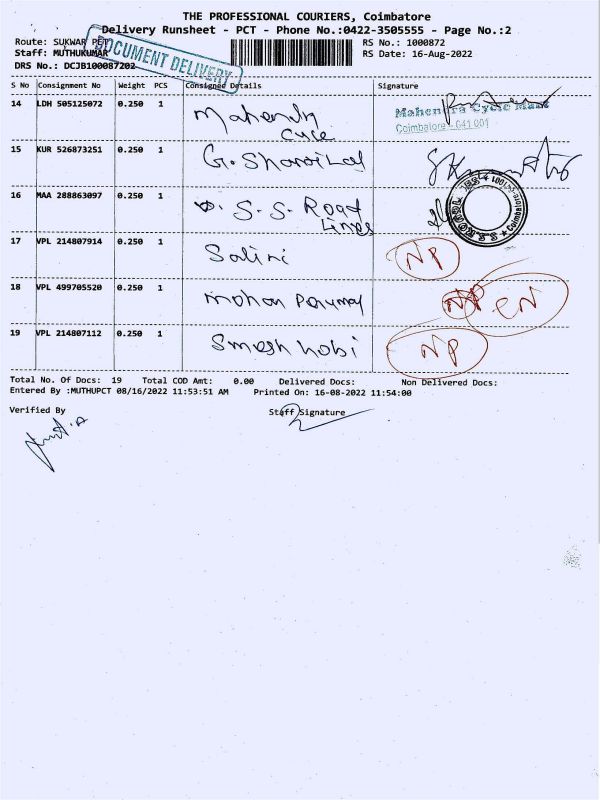 THE PROFESSIONAL COURIERS, Coimbatore
Delivery Runsheet - PCT - Phone No.:0422-3505555 - Page No.:2
Route: SUKWAR PET
RS No.: 1000872
Staff: MUTHUKUMAR
RS Date: 16-Aug-2022
DRS No.: DCJB100087202
DOCUMENT DELIVERY
S No Consignment No Weight PCS Consignee Details Signature
14 LDH 505125072 0.250 1 Mahendra
Cycle
Mahendra Cycle Mart
Coimbatore - 641 001
15 KUR 526873251 0.250 1 G.
16 MAA 288863097 0.250 1 S. S. Road
Lines
Coimbatore
17 VPL 214807914 0.250 1 Salini NP
18 VPL 499705520 0.250 1 mohan Perumal NP CN
19 VPL 214807112 0.250 1 NP
Total No. Of Docs: 19 Total COD Amt: 0.00 Delivered Docs: Non Delivered Docs:
Entered By :MUTHUPCT 08/16/2022 11:53:51 AM Printed On: 16-08-2022 11:54:00
Verified By Staff Signature